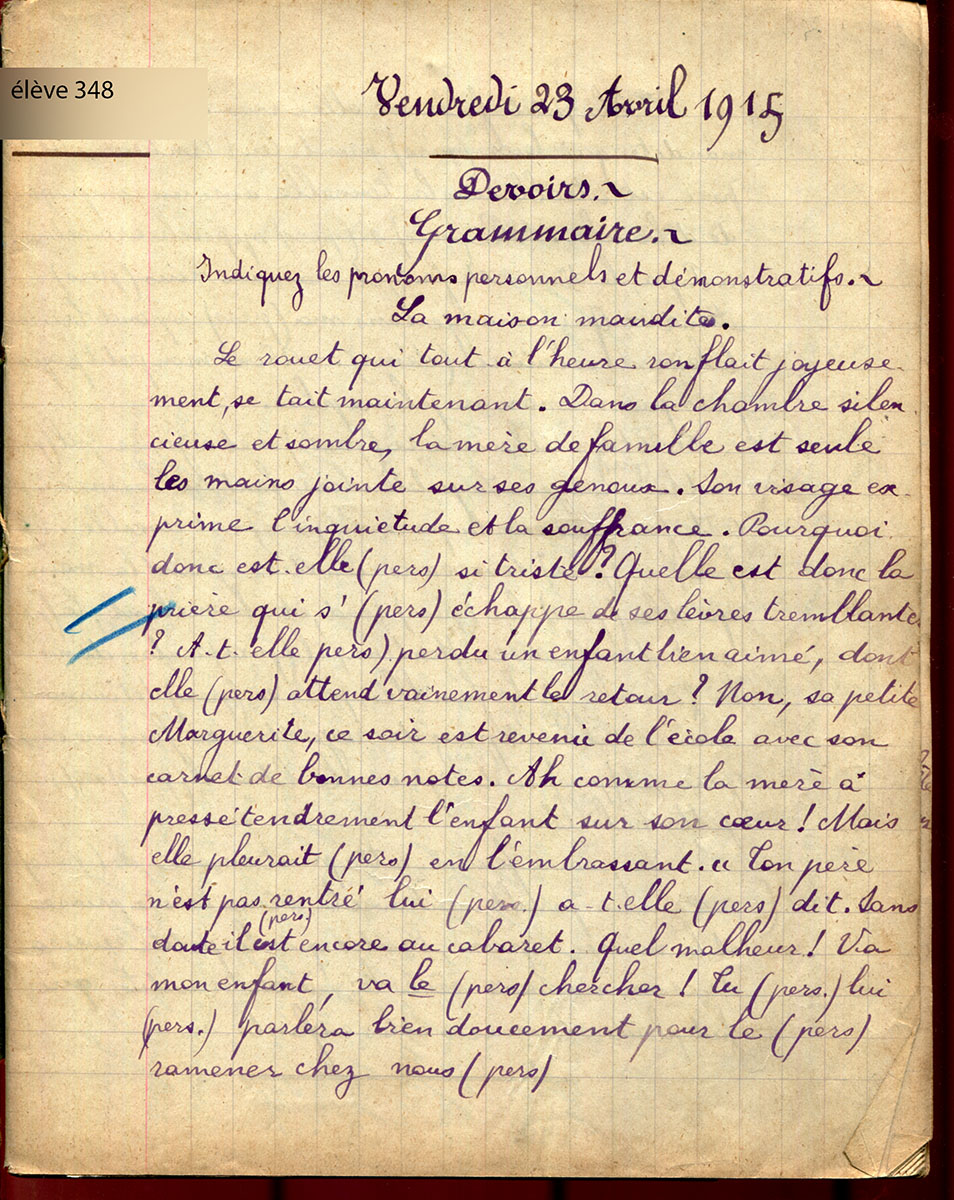 élève 348
Vendredi 23 Avril 1915
Devoirs.~
Grammaire.~
Indiquez les pronoms personnels et démonstratifs.~
La maison maudite.
Le rouet qui tout à l'heure ronflait joyeuse-
ment, se tait maintenant. Dans la chambre silen
cieuse et sombre, la mère de famille est seule
les mains jointe sur ses genoux. Son visage ex-
prime l'inquiétude et la souffrance. Pourquoi
donc est-elle (pers) si triste? Quelle est donc la
prière qui s' (pers) échappe de ses lèvres tremblante
? A-t-elle pers) perdu un enfant bien aimé, dont
elle (pers) attend vainement le retour? Non, sa petite
Marguerite, ce soir est revenu de l'école avec son
carnet de bonnes notes. Ah comme la merè à
pressé tendrement l'enfant sur son cœur! Mais
elle pleurait (pers) en l'embrassant. « Ton perè
n'est pas rentré lui (pers.) a-t-elle (pers) dit. Sans
(pers)
doute il est encore au cabaret. Quel malheur! Va
mon enfant, va le (pers) chercher! Tu (pers.) lui
(pers.) parlera bien doucement pour le (pers)
ramener chez nous (pers)